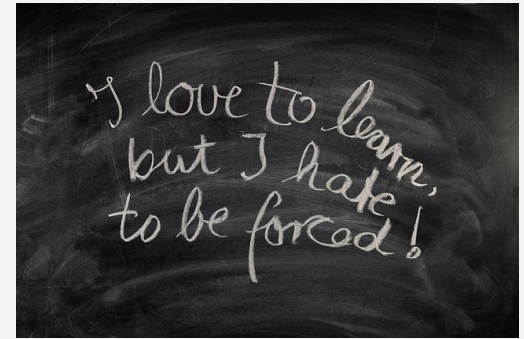 I love to learn,
but I hate
to be forced!